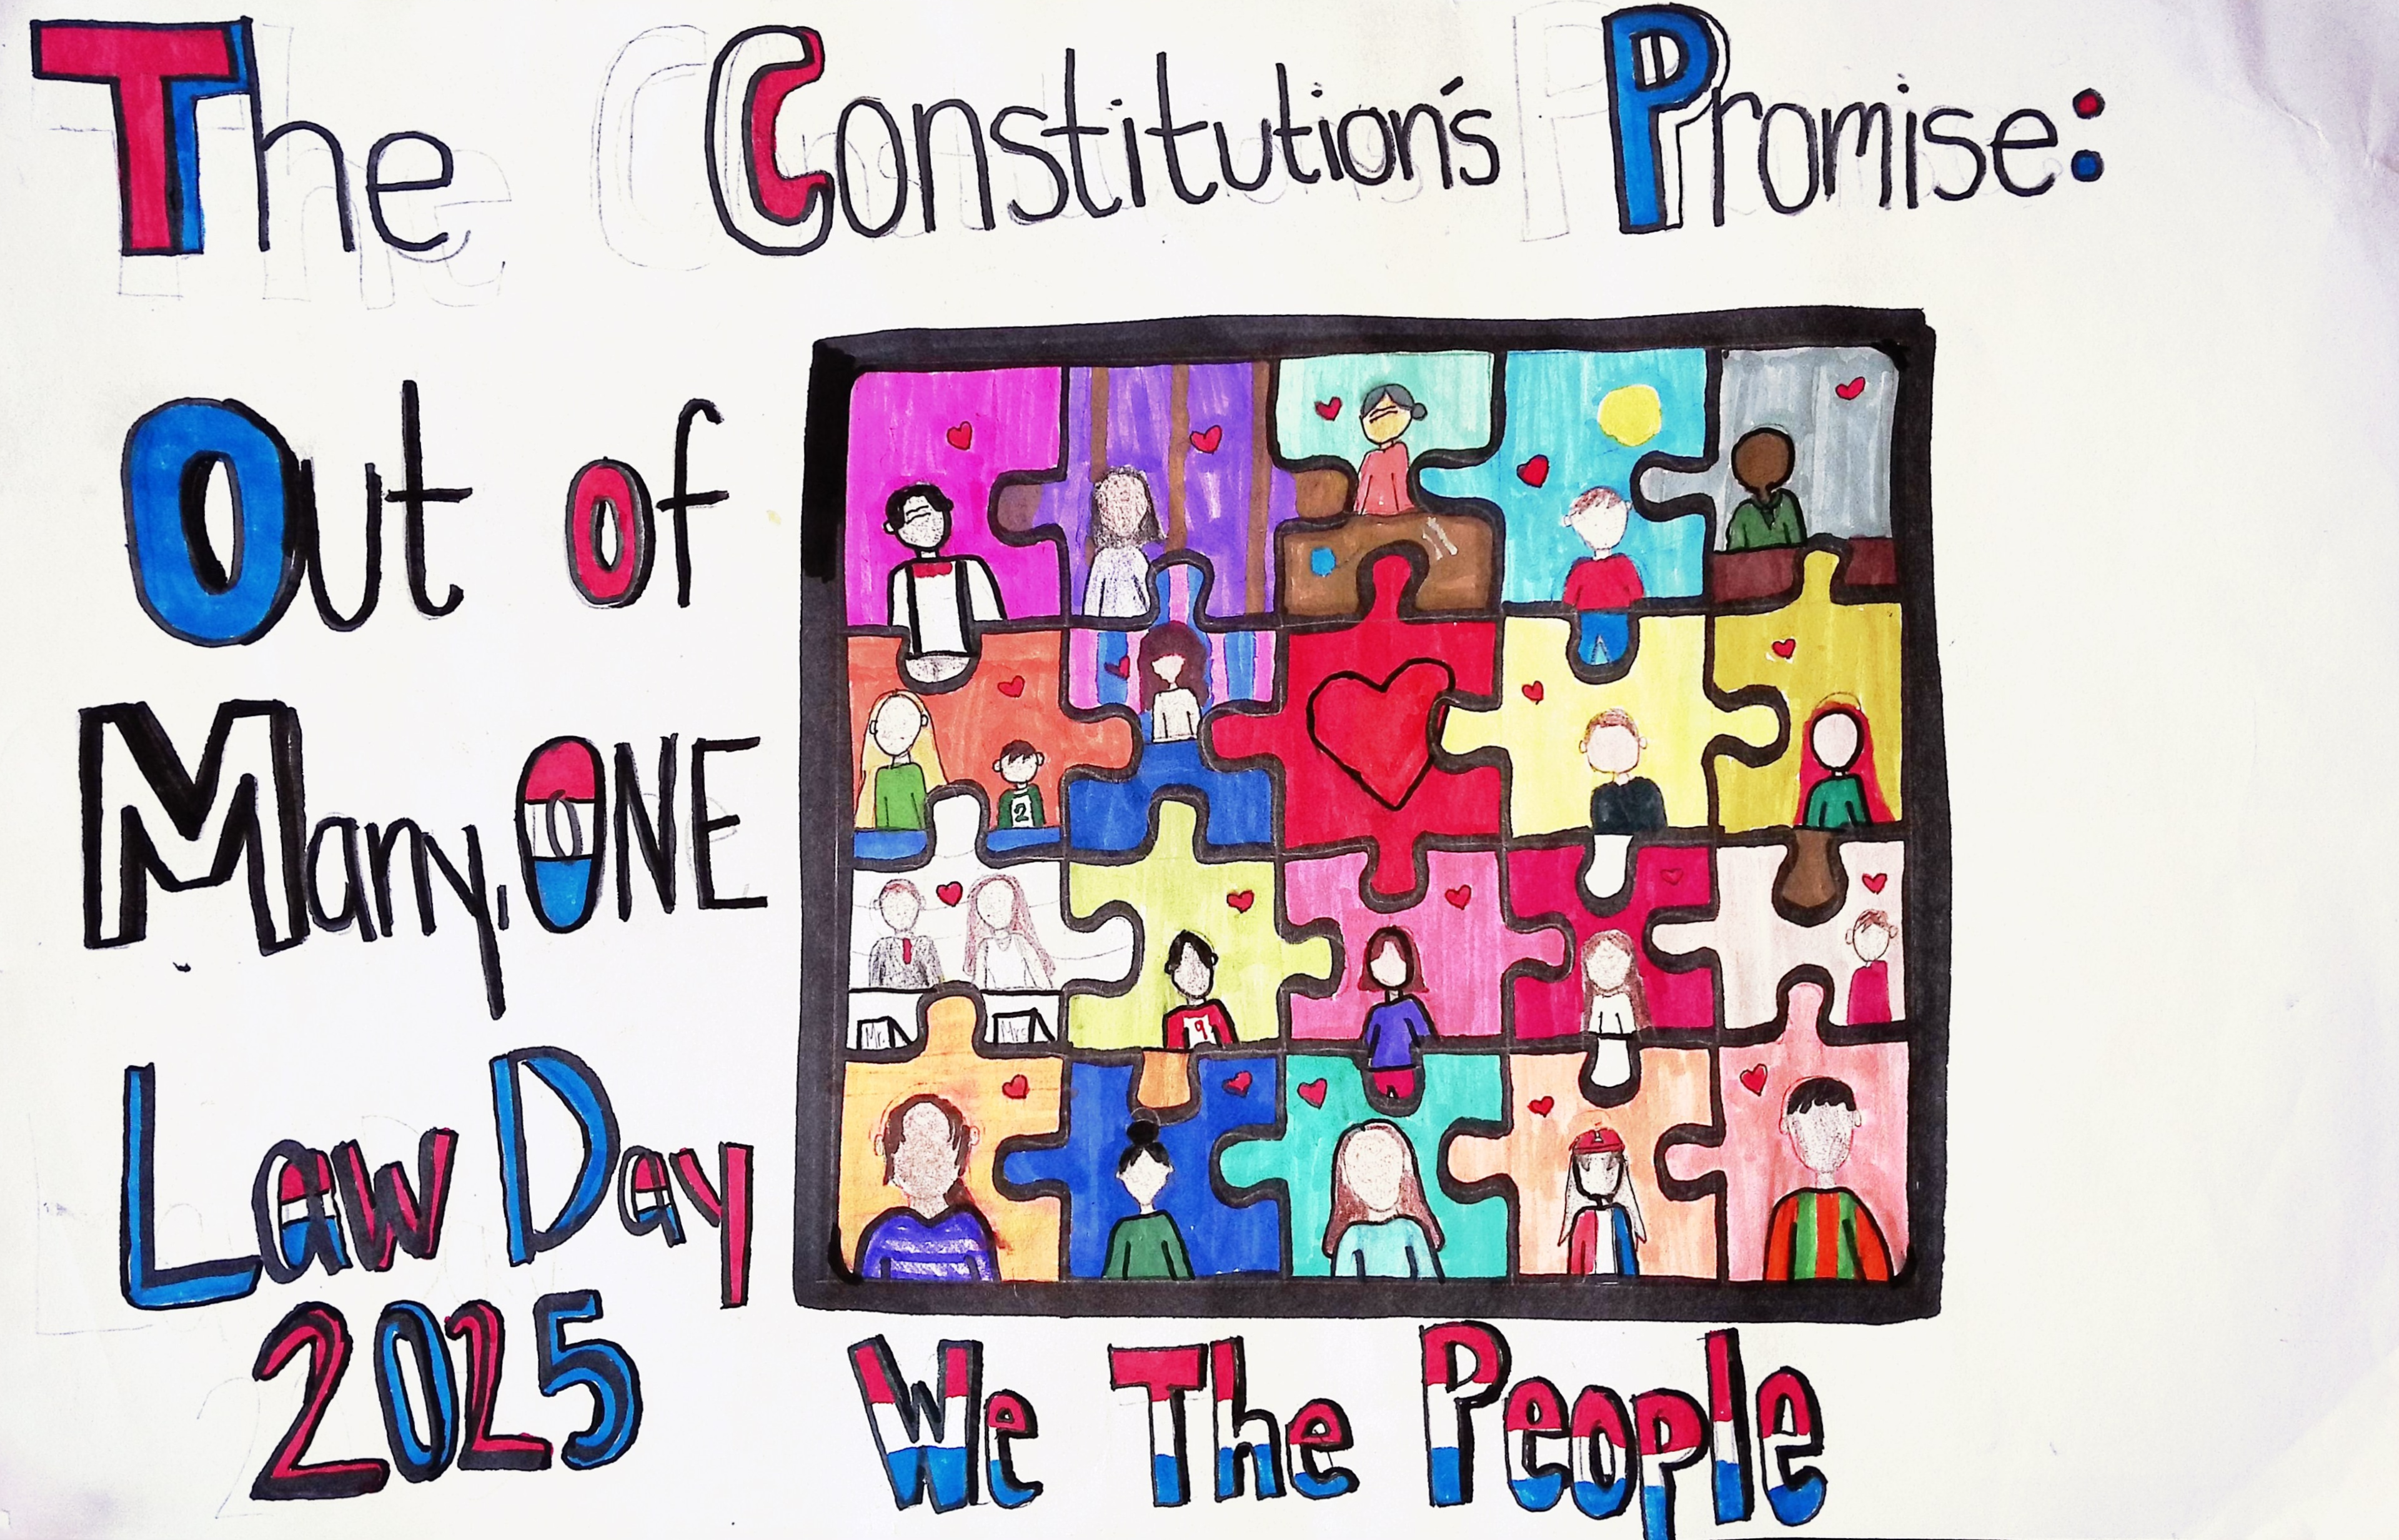 The Constitution's Promise:
Out of
Many, ONE
Law Day
2025
2
Mr.
Mrs.
9
We The People